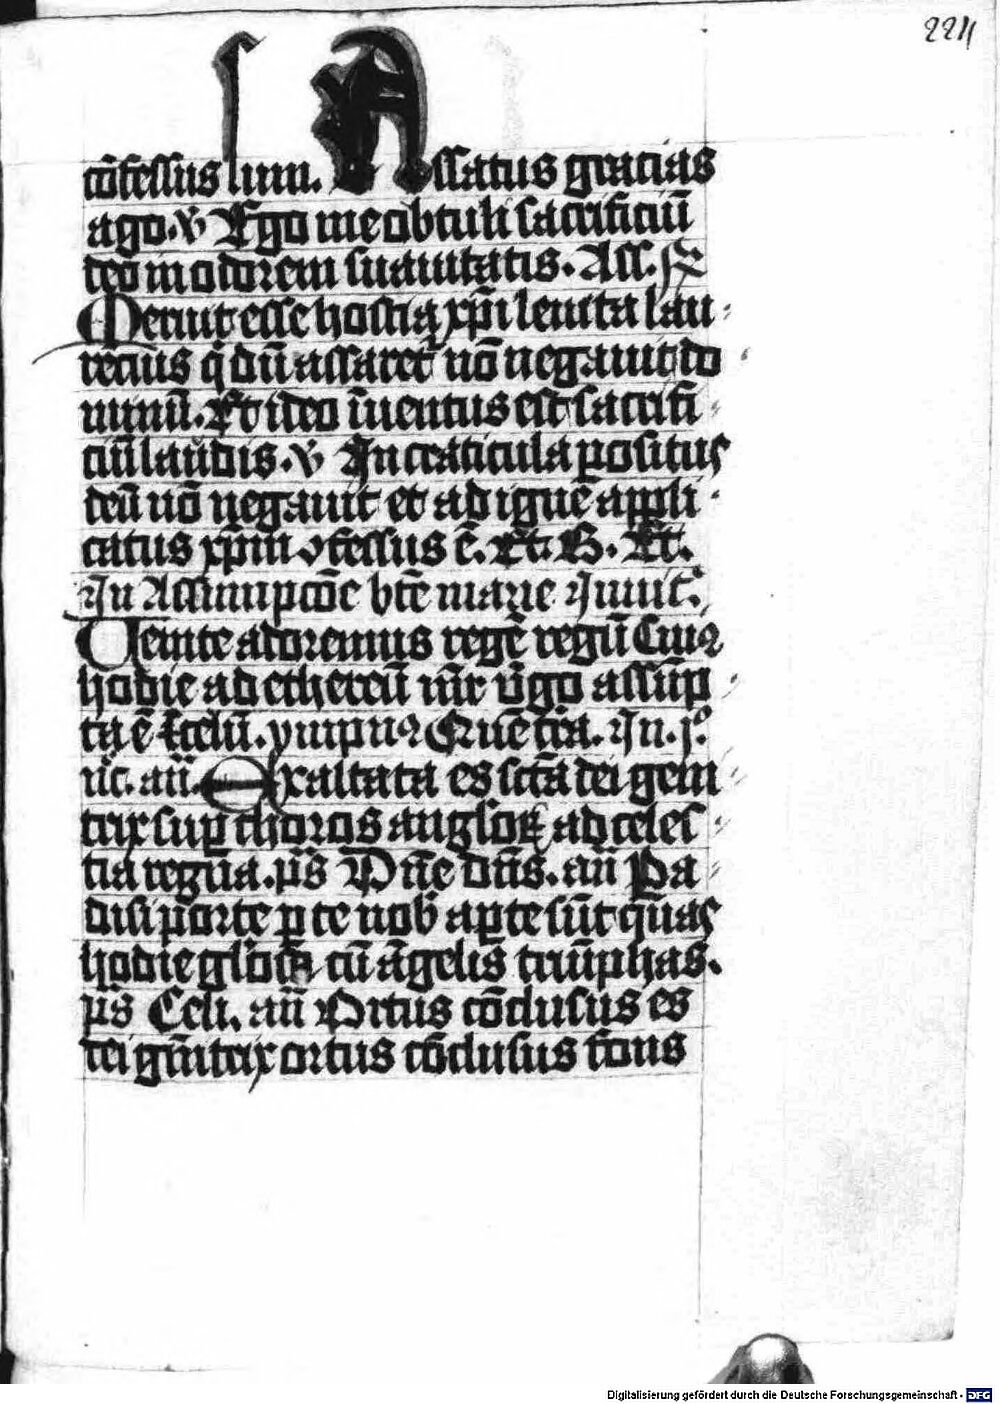 224
cōfessus sum. Assatus gracias
ago. v̄ Ego me obtuli sacrificiū
deo in odorem suauitatis. Ass. R̄
Meruit esse hostia xp̄i leuita lau-
rēcius q̄ dū assaret̄ nō negauit do
minū. Et ideo īuentus est sacrifi-
ciū laudis. v̄ In craticula positus
deū nō negauit et ad ignē appli-
catus xp̄m ꝯfessus ē. Et. G. Et.
In Assumpcōe bt̄e marie Inuit.
Uenite adoremus regē regū Cuiꝰ
hodie ad ethereū uīr v̄go assūp-
ta ē celū. ympnꝰ Que t̄ra. In. j.º
nc̄. an̄. Exaltata es sct̄a dei geni-
trix suꝑ choros angl̓oꝝ ad celes-
tia regn̄a. ps̄ Dn̄e dn̄s. an̄ Pa-
disi porte ꝑ te nob̄ apte sūt q̄ nas
hodie gl̓osa cū āgelis triūphas.
ps̄ Celi. an̄ Ortus cōclusus es
dei gn̄itrix ortus cōclusus fons
Digitalisierung gefördert durch die Deutsche Forschungsgemeinschaft - DFG